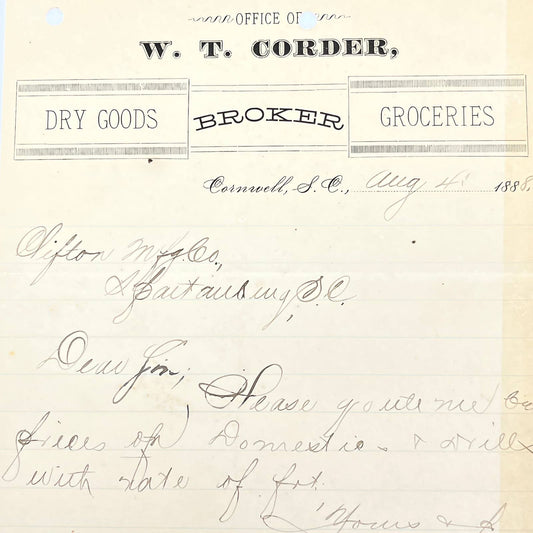 OFFICE OF
W. T. CORDER,
DRY GOODS BROKER GROCERIES
Cornwell, S. C., Aug 4 1888.
Clifton Mfg. Co.,
Spartanburg, S.C.
Dear Sir;
Please quote me
prices on Domestic & Drills
with rate of frt.
Yours &